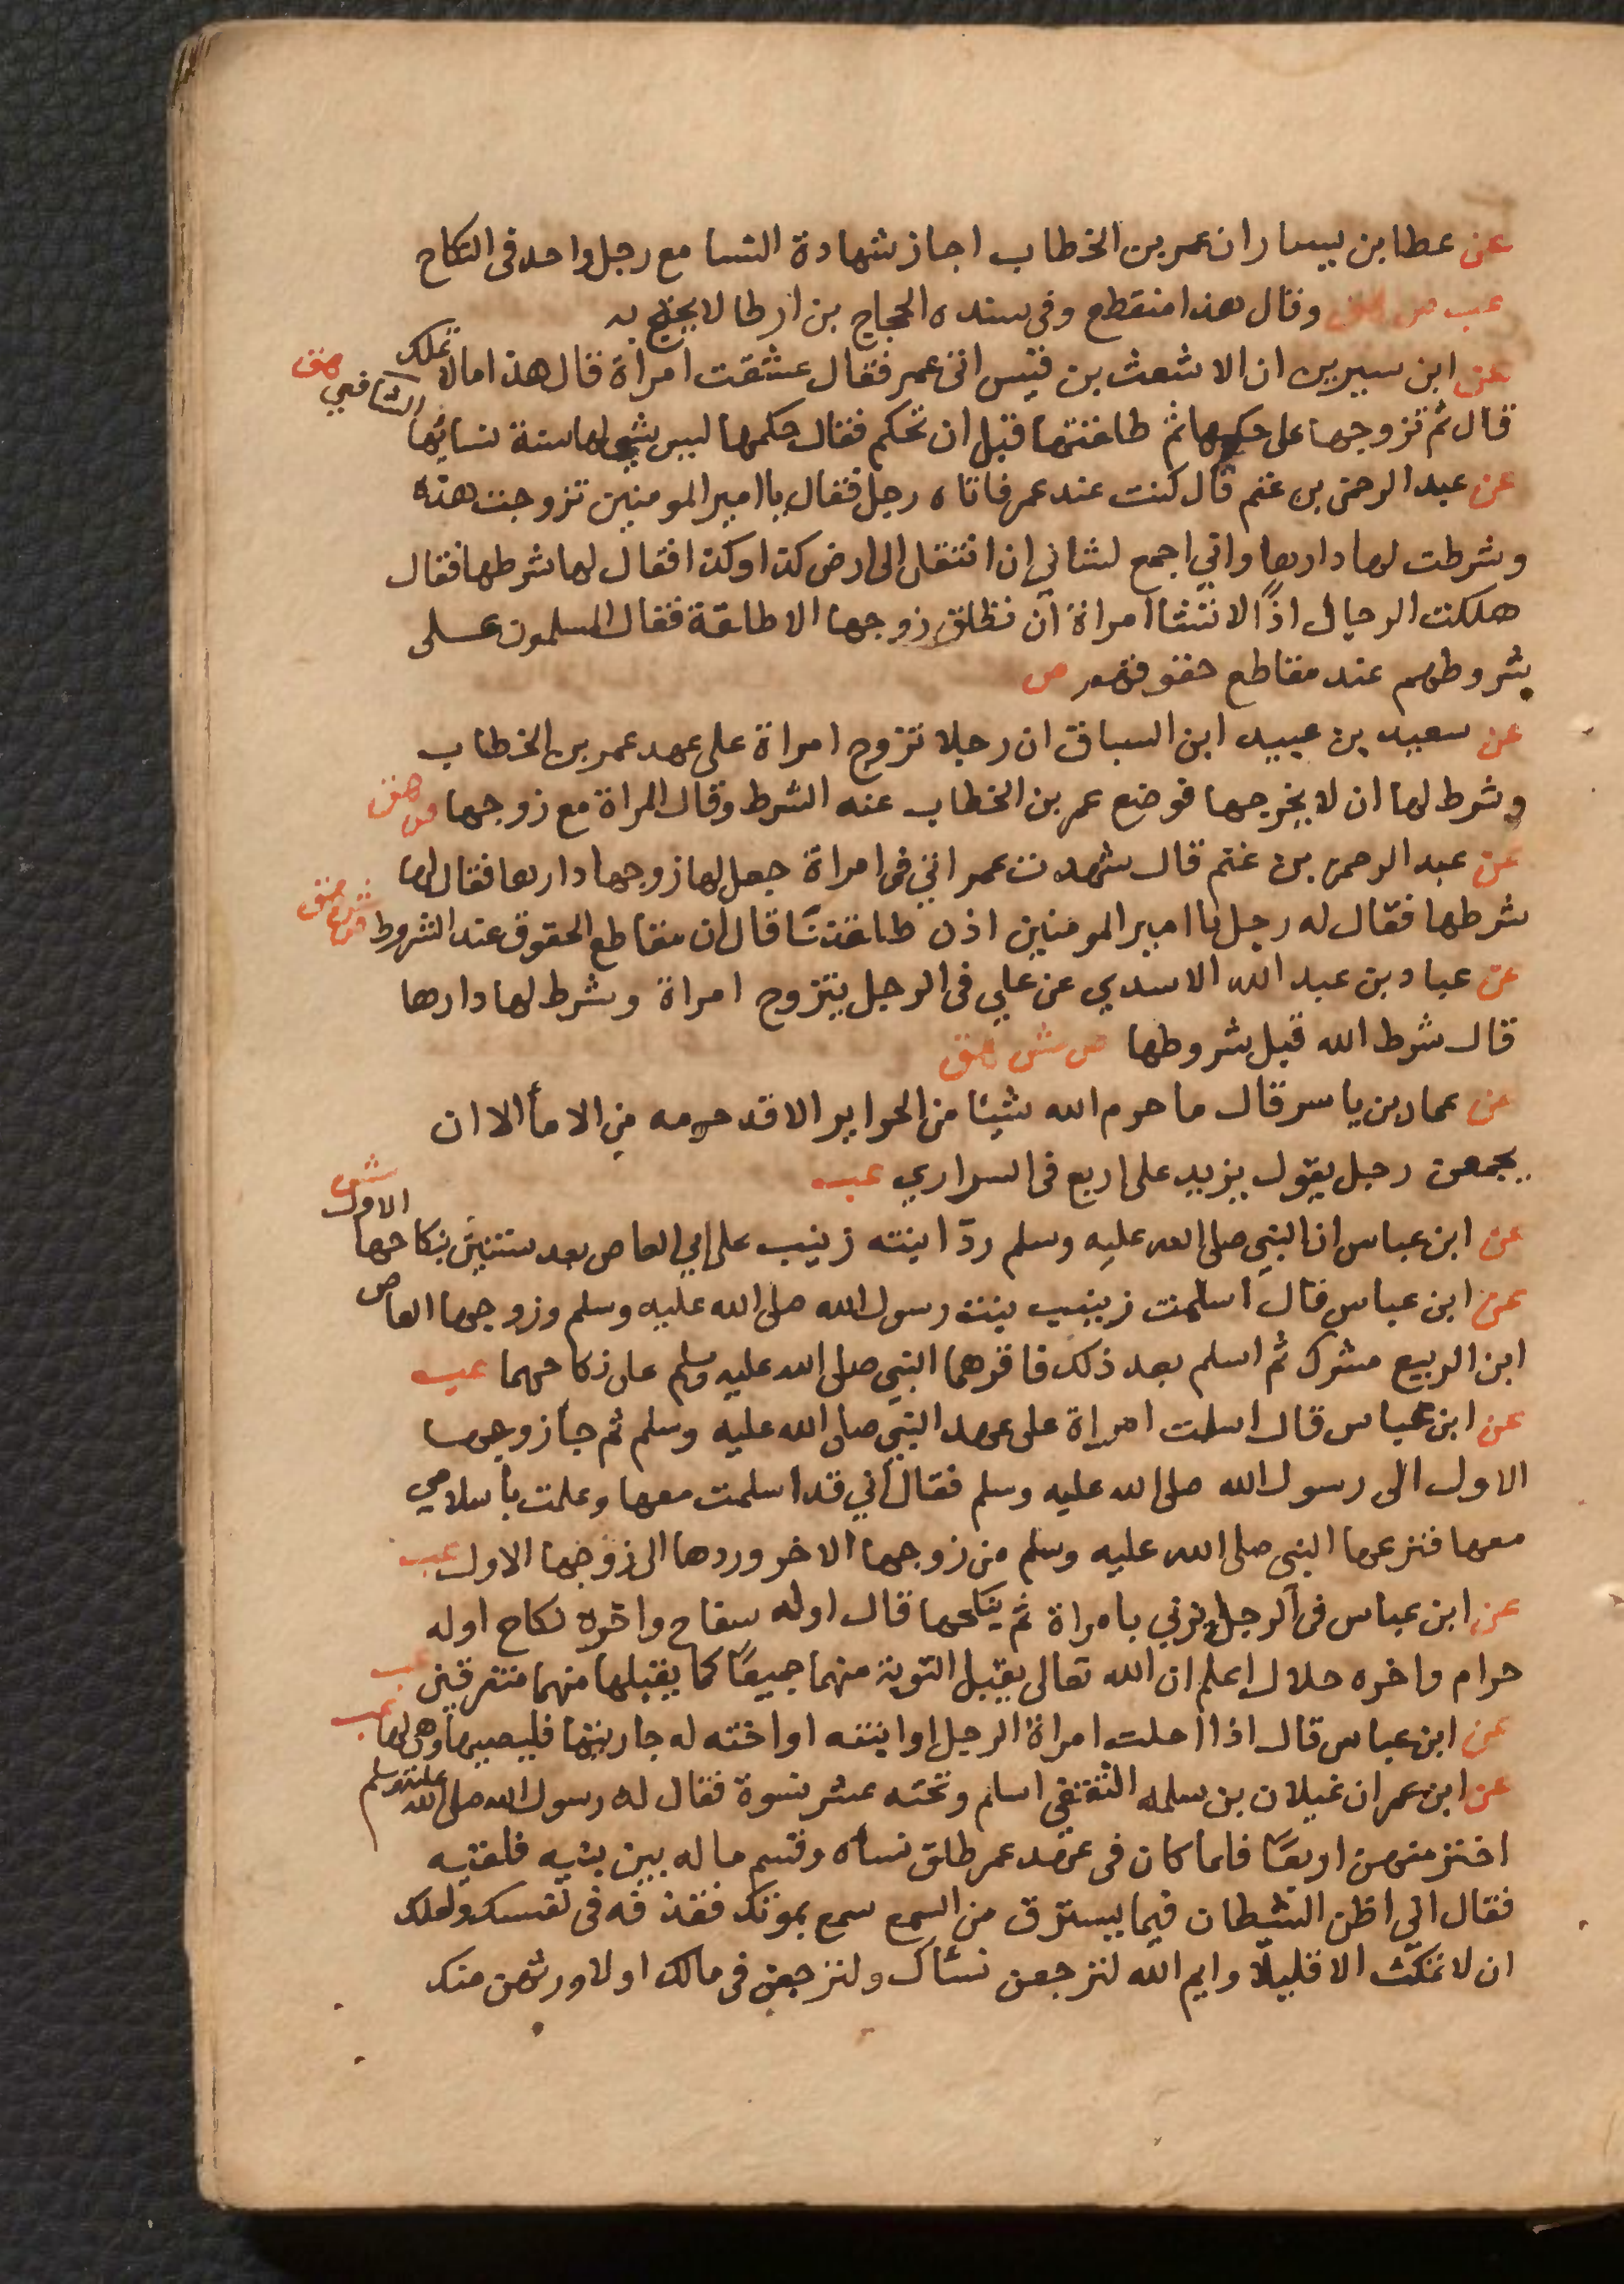 عن عطا بن يسار ان عمر بن الخطاب اجاز شهادة النسا مع رجل واحد فى النكاح
عب ص هق وقال هذا منقطع وفى سنده الحجاج بن ارطا لا يحتج به
عن ابن سيرين ان الاشعث بن قيس اتى عمر فقال عشقت امراة قال هذا مالا تملك
قال ثم تزوجها على حكمها ثم طلقتها قبل ان تحكم فقال حكمها ليس بشى لها سنة نسائها الشافعي هق
عن عبد الرحمن بن غنم قال كنت عند عمر فاتاه رجل فقال يا امير المومنين تزوجت هذه
وشرطت لها دارها واني اجمع لشاني ان انتقل الى ارض كذا وكذا فقال لها شرطها فقال
هلكت الرجال اذًا لا تشا امراة ان تطلق زوجها الا طلقة فقال المسلمون على
شروطهم عند مقاطع حقوقهم ص
عن سعيد بن عبيد ابن السباق ان رجلا تزوج امراة على عهد عمر بن الخطاب
وشرط لها ان لا يخرجها فوضع عمر بن الخطاب عنه الشرط وقال المراة مع زوجها ص هق
عن عبد الرحمن بن غنم قال شهدت عمر اتي فى امراة جعل لها زوجها دارها فقال لها
شرطها فقال له رجل يا امير المومنين اذن طلقتنا قال ان مقاطع الحقوق عند الشروط
عن عباد بن عبد الله الاسدي عن علي فى الرجل يتزوج امراة وشرط لها دارها
قال شرط الله قبل شروطها ص ش هق
عن عمار بن ياسر قال ما حرم الله شيئا من الحراير الا قد حرمه من الاما الا ان
يجمعهن رجل يقول يزيد على اربع فى السراري عب
عن ابن عباس ان النبي صلى الله عليه وسلم ردّ ابنته زينب على ابي العاص بعد سنتين بنكاحها الاول ش
عن ابن عباس قال اسلمت زينب بنت رسول الله صلى الله عليه وسلم وزوجها العاص
ابن الربيع مشرك ثم اسلم بعد ذلك فاقرهما النبي صلى الله عليه وسلم على نكاحهما عب
عن ابن عباس قال اسلمت امراة على عهد النبي صلى الله عليه وسلم ثم جا زوجها
الاول الى رسول الله صلى الله عليه وسلم فقال اني قد اسلمت معها وعلمت باسلامي
معها فنزعها النبي صلى الله عليه وسلم من زوجها الاخر وردها الى زوجها الاول عب
عن ابن عباس فى الرجل يزني بامراة ثم ينكحها قال اوله سفاح واخره نكاح اوله
حرام واخره حلال اعلم ان الله تعالى يقبل التوبة منهما جميعًا كما يقبلها منهما متفرقين عب
عن ابن عباس قال اذا احلت امراة الرجل او ابنته او اخته له جاريتها فليصبها وهى لها عب
عن ابن عمر ان غيلان بن سلمه الثقفي اسلم وتحته عشر نسوة فقال له رسول الله صلى الله عليه وسلم
اختر منهن اربعًا فلما كان فى عهد عمر طلق نساه وقسم ماله بين بنيه فلقيه
فقال اني اظن الشيطان فيما يسترق من السمع سمع بموتك فقذفه فى نفسك ولعلك
ان لا تمكث الا قليلا وايم الله لترجعن نساك ولترجعن فى مالك او لاورثهن منك